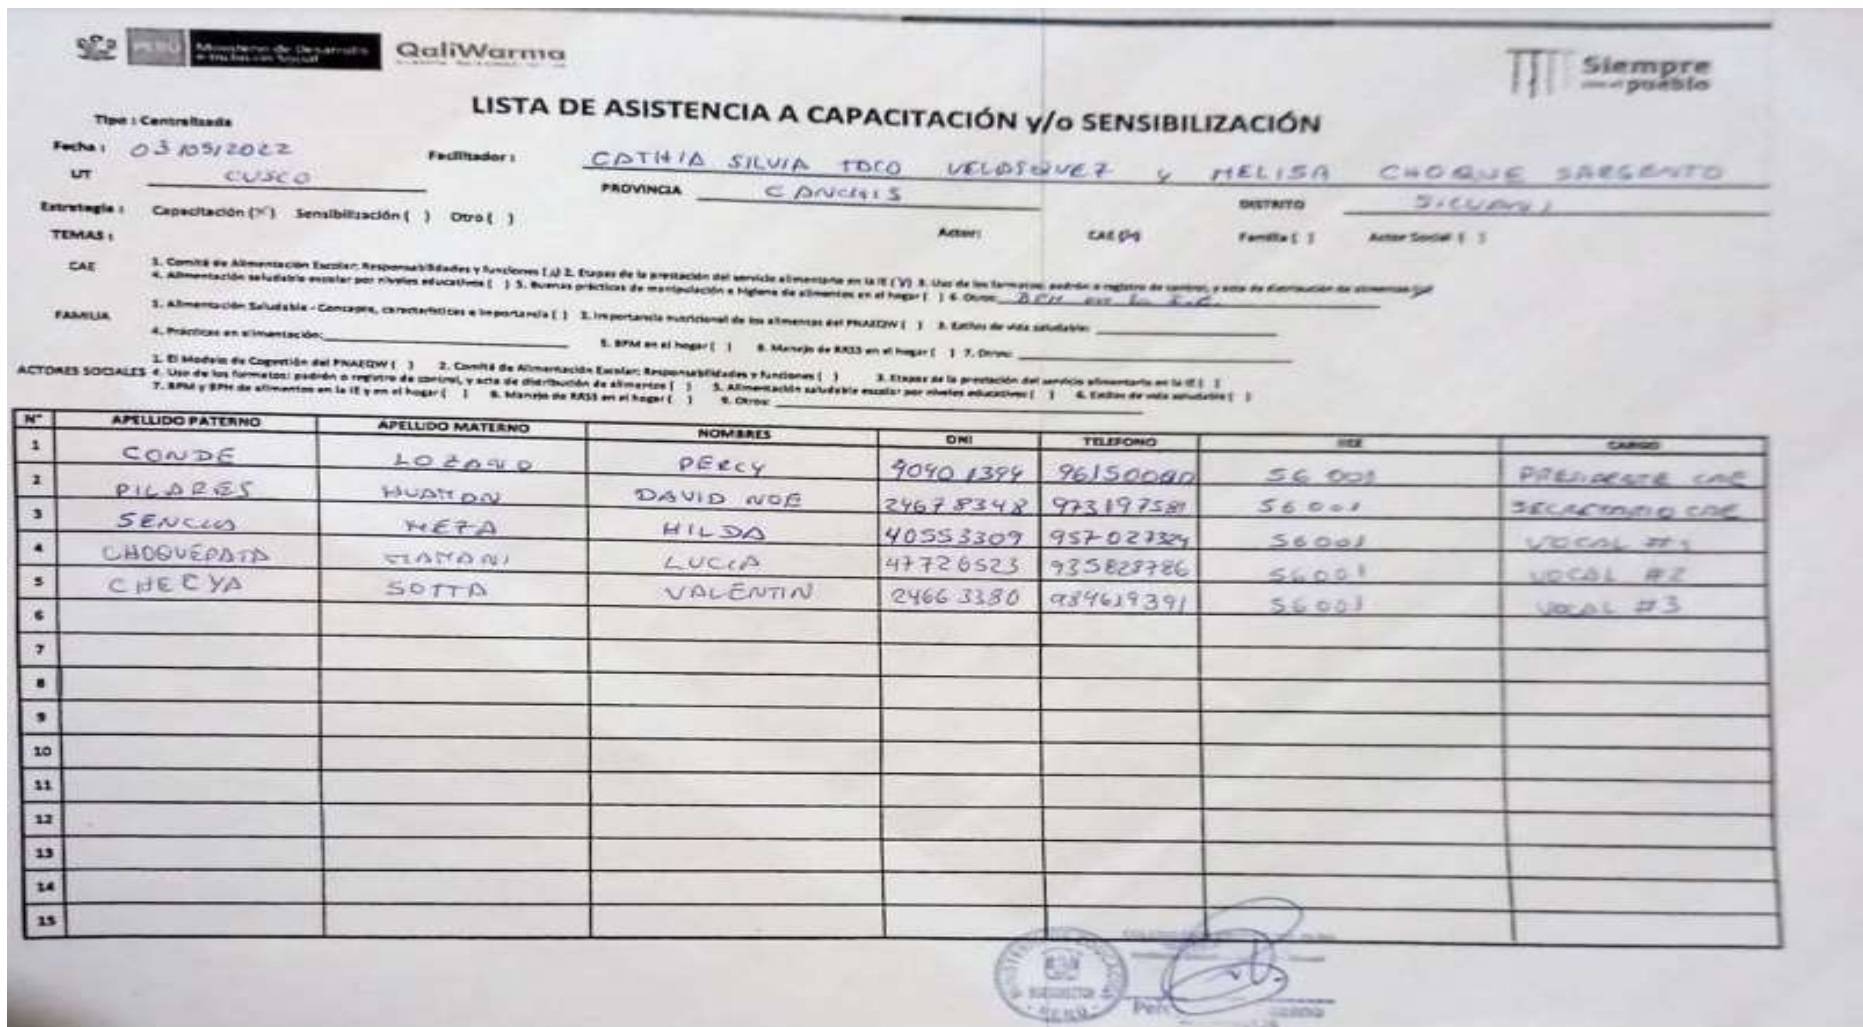 PERÚ Ministerio de Desarrollo e Inclusión Social QaliWarma
Siempre con el pueblo
LISTA DE ASISTENCIA A CAPACITACIÓN y/o SENSIBILIZACIÓN
Tipo : Centralizada
Fecha : 03/05/2022 Facilitador : CATHIA SILVIA TOCO VELASQUEZ y MELISA CHOQUE SARGENTO
UT CUSCO PROVINCIA CANCHIS DISTRITO SICUANI
Estrategia : Capacitación (X) Sensibilización ( ) Otro ( )
TEMAS : Actor: CAE (X) Familia ( ) Actor Social ( )
CAE 1. Comité de Alimentación Escolar: Responsabilidades y funciones ( ) 2. Etapas de la prestación del servicio alimentario en la IE (V) 3. Uso de los formatos: padrón o registro de control, y acta de distribución de alimentos
4. Alimentación saludable escolar por niveles educativos ( ) 5. Buenas prácticas de manipulación e higiene de alimentos en el hogar ( ) 6. Otros: en la I.E.
FAMILIA 1. Alimentación Saludable - Concepto, características e importancia ( ) 2. Importancia nutricional de los alimentos del PNAEQW ( ) 3. Estilos de vida saludable:
4. Prácticas en alimentación: 5. BPM en el hogar ( ) 6. Manejo de RRSS en el hogar ( ) 7. Otros:
ACTORES SOCIALES 1. El Modelo de Cogestión del PNAEQW ( ) 2. Comité de Alimentación Escolar: Responsabilidades y funciones ( ) 3. Etapas de la prestación del servicio alimentario en la IE ( )
4. Uso de los formatos: padrón o registro de control, y acta de distribución de alimentos ( ) 5. Alimentación saludable escolar por niveles educativos ( ) 6. Estilos de vida saludable ( )
7. BPM y BPH de alimentos en la IE y en el hogar ( ) 8. Manejo de RRSS en el hogar ( ) 9. Otros:
N° APELLIDO PATERNO APELLIDO MATERNO NOMBRES DNI TELEFONO IIEE CARGO
1 CONDE LOZANO PERCY 40401394 56001 PRESIDENTE CAE
2 PILARES HUAMAN DAVID NOE 24678348 973197581 56001 SECRETARIO CAE
3 SENCIA MEZA HILDA 40553309 957027324 56001 VOCAL #1
4 CHOQUEPATA MAMANI LUCIA 47726523 935828786 56001 VOCAL #2
5 CHECYA SOTTA VALENTIN 24663380 984619391 56001 VOCAL #3
6
7
8
9
10
11
12
13
14
15